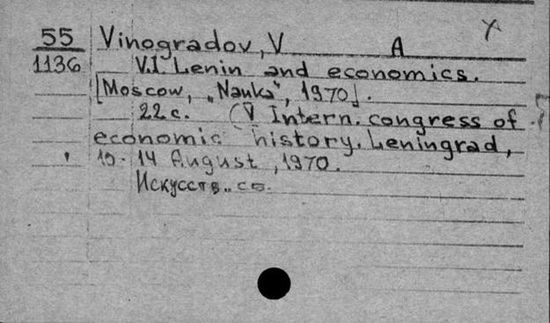 55 Vinogradov, V A X
1136 V.I. Lenin and economics.
[Moscow, „Nauka", 1970].
22 c. (V Intern. congress of
economic history. Leningrad,
10-14 August, 1970.
Искусств.. сб.